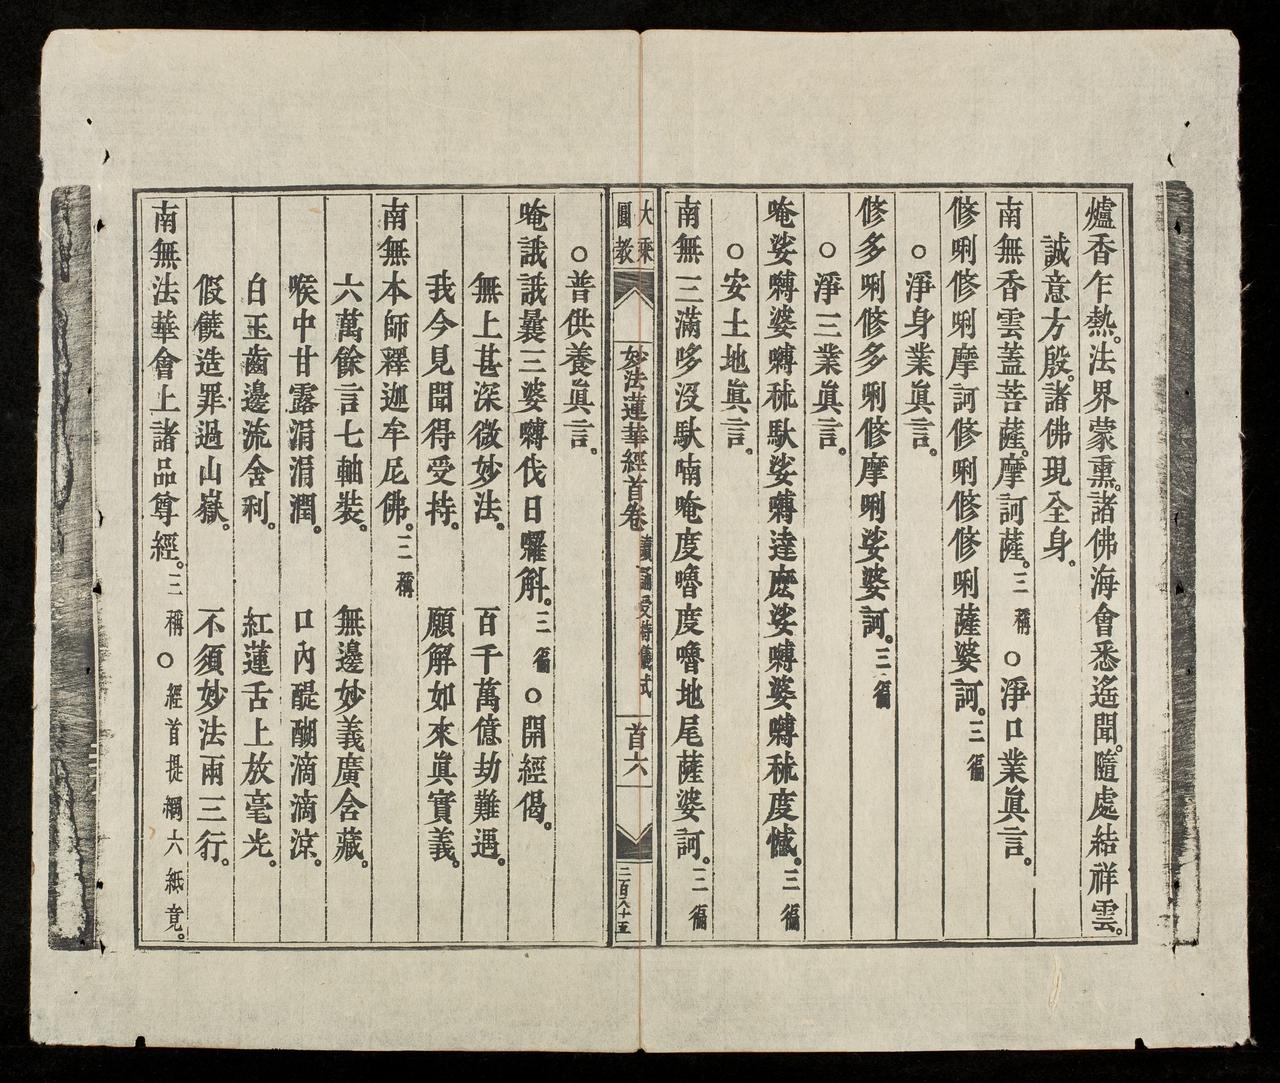 爐香乍熱。法界蒙熏。諸佛海會悉遙聞。隨處結祥雲。
誠意方殷。諸佛現全身。
南無香雲蓋菩薩。摩訶薩。三稱 ○淨口業眞言。
修唎修唎摩訶修唎修修唎薩婆訶。三徧
○淨身業眞言。
修多唎修多唎修摩唎娑婆訶。三徧
○淨三業眞言。
唵娑嚩婆嚩秫馱娑嚩達麽娑嚩婆嚩秫度憾。三徧
○安土地眞言。
南無三滿哆沒馱喃唵度嚕度嚕地尾薩婆訶。三徧
大乘圓教 妙法蓮華經首卷 讀誦受持儀式 首六 二百八十五
○普供養眞言。
唵誐誐曩三婆嚩伐日囉斛。三徧 ○開經偈。
無上甚深微妙法。 百千萬億劫難遇。
我今見聞得受持。 願解如來眞實義。
南無本師釋迦牟尼佛。三稱
六萬餘言七軸裝。 無邊妙義廣含藏。
喉中甘露涓涓潤。 口內醍醐滴滴涼。
白玉齒邊流舍利。 紅蓮舌上放毫光。
假饒造罪過山嶽。 不須妙法兩三行。
南無法華會上諸品尊經。三稱 ○經首提綱六紙竟。